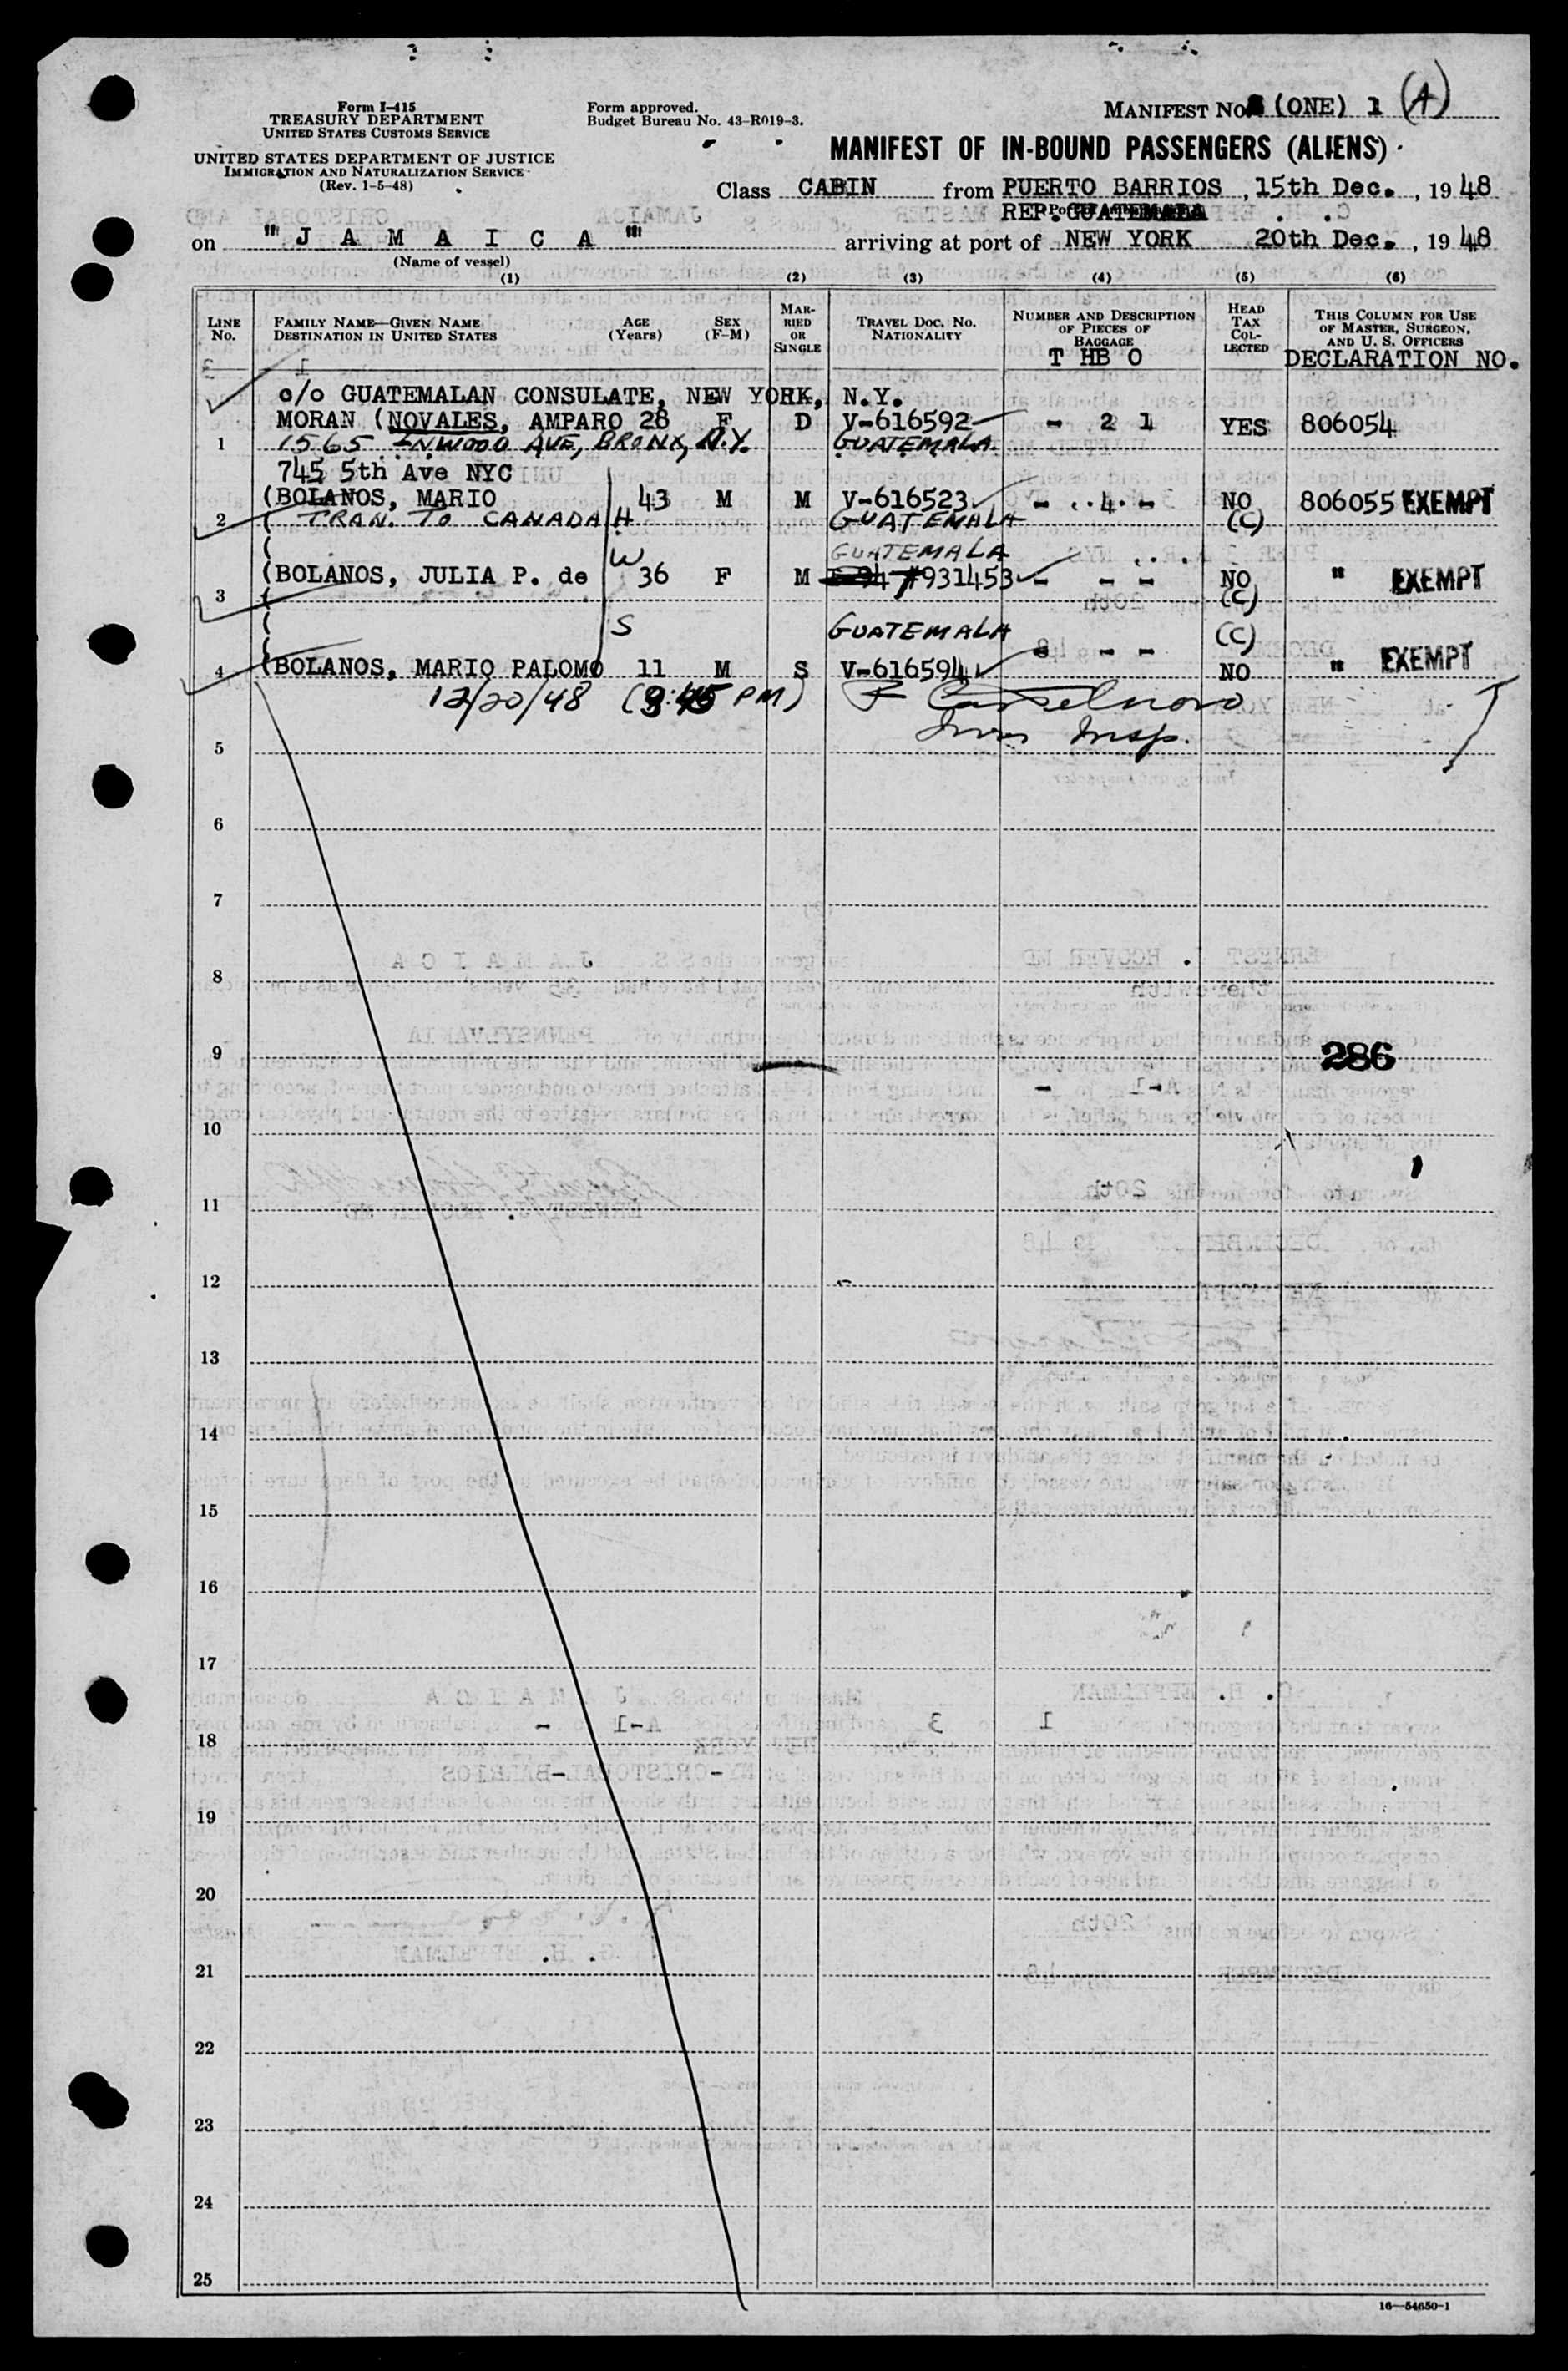 Form I-415
TREASURY DEPARTMENT
UNITED STATES CUSTOMS SERVICE
UNITED STATES DEPARTMENT OF JUSTICE
IMMIGRATION AND NATURALIZATION SERVICE
(Rev. 1-5-48)
Form approved.
Budget Bureau No. 43-R019-3.
MANIFEST NO. (ONE) 1 (A)
MANIFEST OF IN-BOUND PASSENGERS (ALIENS)
Class CABIN from PUERTO BARRIOS, 15th Dec., 1948
REP. GUATEMALA
on "J A M A I C A" arriving at port of NEW YORK 20th Dec., 1948
(Name of vessel)
(1) (2) (3) (4) (5) (6)
LINE No. FAMILY NAME—GIVEN NAME DESTINATION IN UNITED STATES AGE (Years) SEX (F-M) MARRIED OR SINGLE TRAVEL DOC. NO. NATIONALITY NUMBER AND DESCRIPTION OF PIECES OF BAGGAGE HEAD TAX COLLECTED THIS COLUMN FOR USE OF MASTER, SURGEON, AND U. S. OFFICERS
T HB O DECLARATION NO.
c/o GUATEMALAN CONSULATE, NEW YORK, N.Y.
MORAN (NOVALES, AMPARO 28 F D V-616592 - 2 1 YES 806054
1 1565 INWOOD AVE, BRONX, N.Y. GUATEMALA
745 5th Ave NYC
(BOLANOS, MARIO 43 M M V-616523 - 4 - NO 806055 EXEMPT
2 ( TRAN. TO CANADA H GUATEMALA (C)
( W GUATEMALA
(BOLANOS, JULIA P. de 36 F M #931453 - - - NO " EXEMPT
3 ( (C)
( S GUATEMALA (C)
4 (BOLANOS, MARIO PALOMO 11 M S V-616594 - - NO " EXEMPT
12/20/48 (3:45 PM) F Castelnovo
Imm Insp.
5
6
7
8
9
286
10
11
12
13
14
15
16
17
18
19
20
21
22
23
24
25
16—54650-1